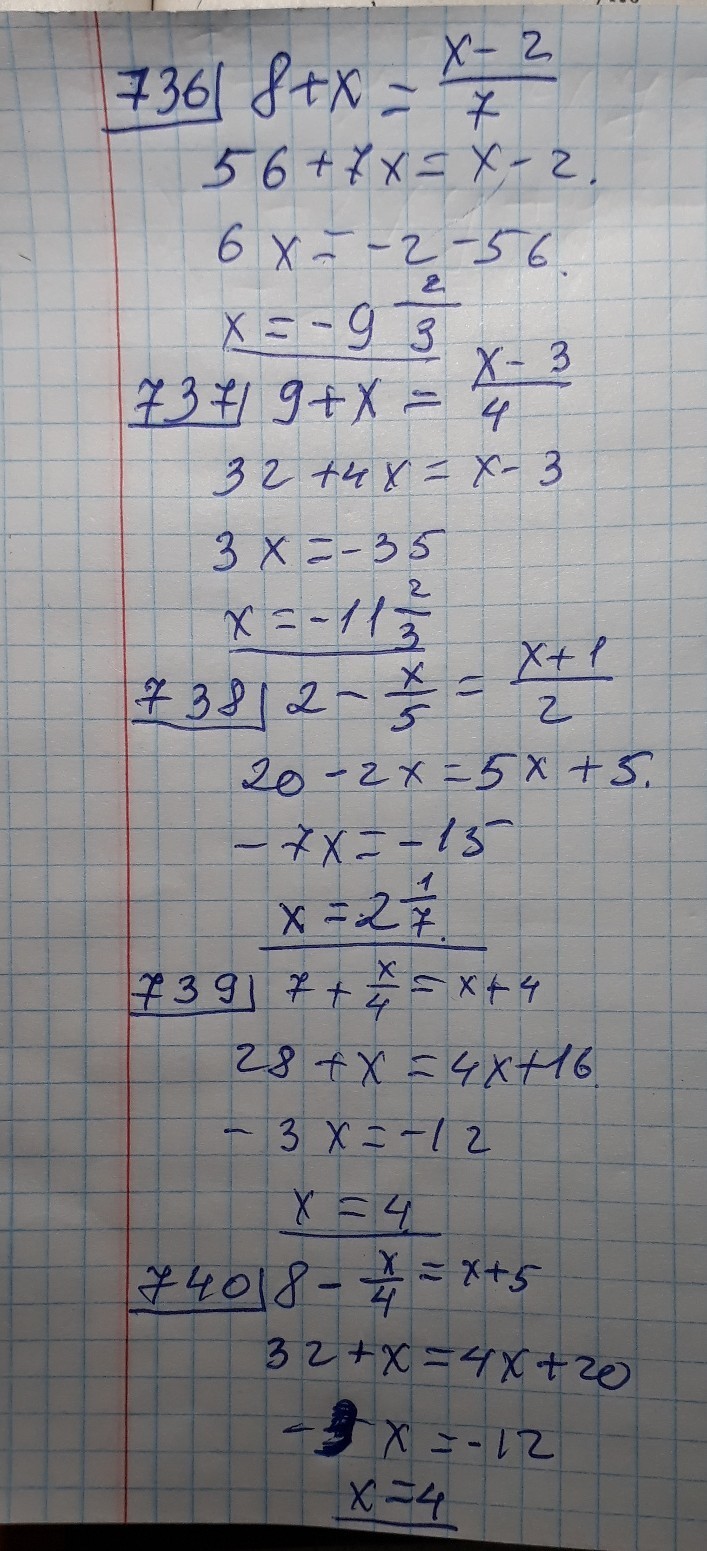 736| 8+x = (x-2)/7
56+7x = x-2.
6x = -2-56.
x = -9 2/3
737| 9+x = (x-3)/4
32+4x = x-3
3x = -35
x = -11 2/3
738| 2 - x/5 = (x+1)/2
20-2x = 5x+5.
-7x = -15
x = 2 1/7.
739| 7 + x/4 = x+4
28+x = 4x+16
-3x = -12
x = 4
740| 8 - x/4 = x+5
32+x = 4x+20
x = -12
x = 4